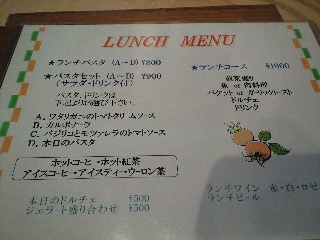 LUNCH MENU
★ランチパスタ (A~D) ¥800
★パスタセット (A~D) ¥900
(サラダ・ドリンク付)
パスタ、ドリンクは
下記よりお選び下さい。
A. ワタリガニのトマトクリームソース
B. カルボナーラ
C. バジリコとモツァレラのトマトソース
D. 本日のパスタ
ホットコーヒー・ホット紅茶
アイスコーヒー・アイスティー・ウーロン茶
本日のドルチェ ¥500
ジェラート盛り合わせ ¥500
★ランチコース ¥1600
前菜盛り
魚 or 肉料理
バゲット or ガーリックトースト
ドルチェ
ドリンク
ランチワイン 赤・白・ロゼ
ランチビール